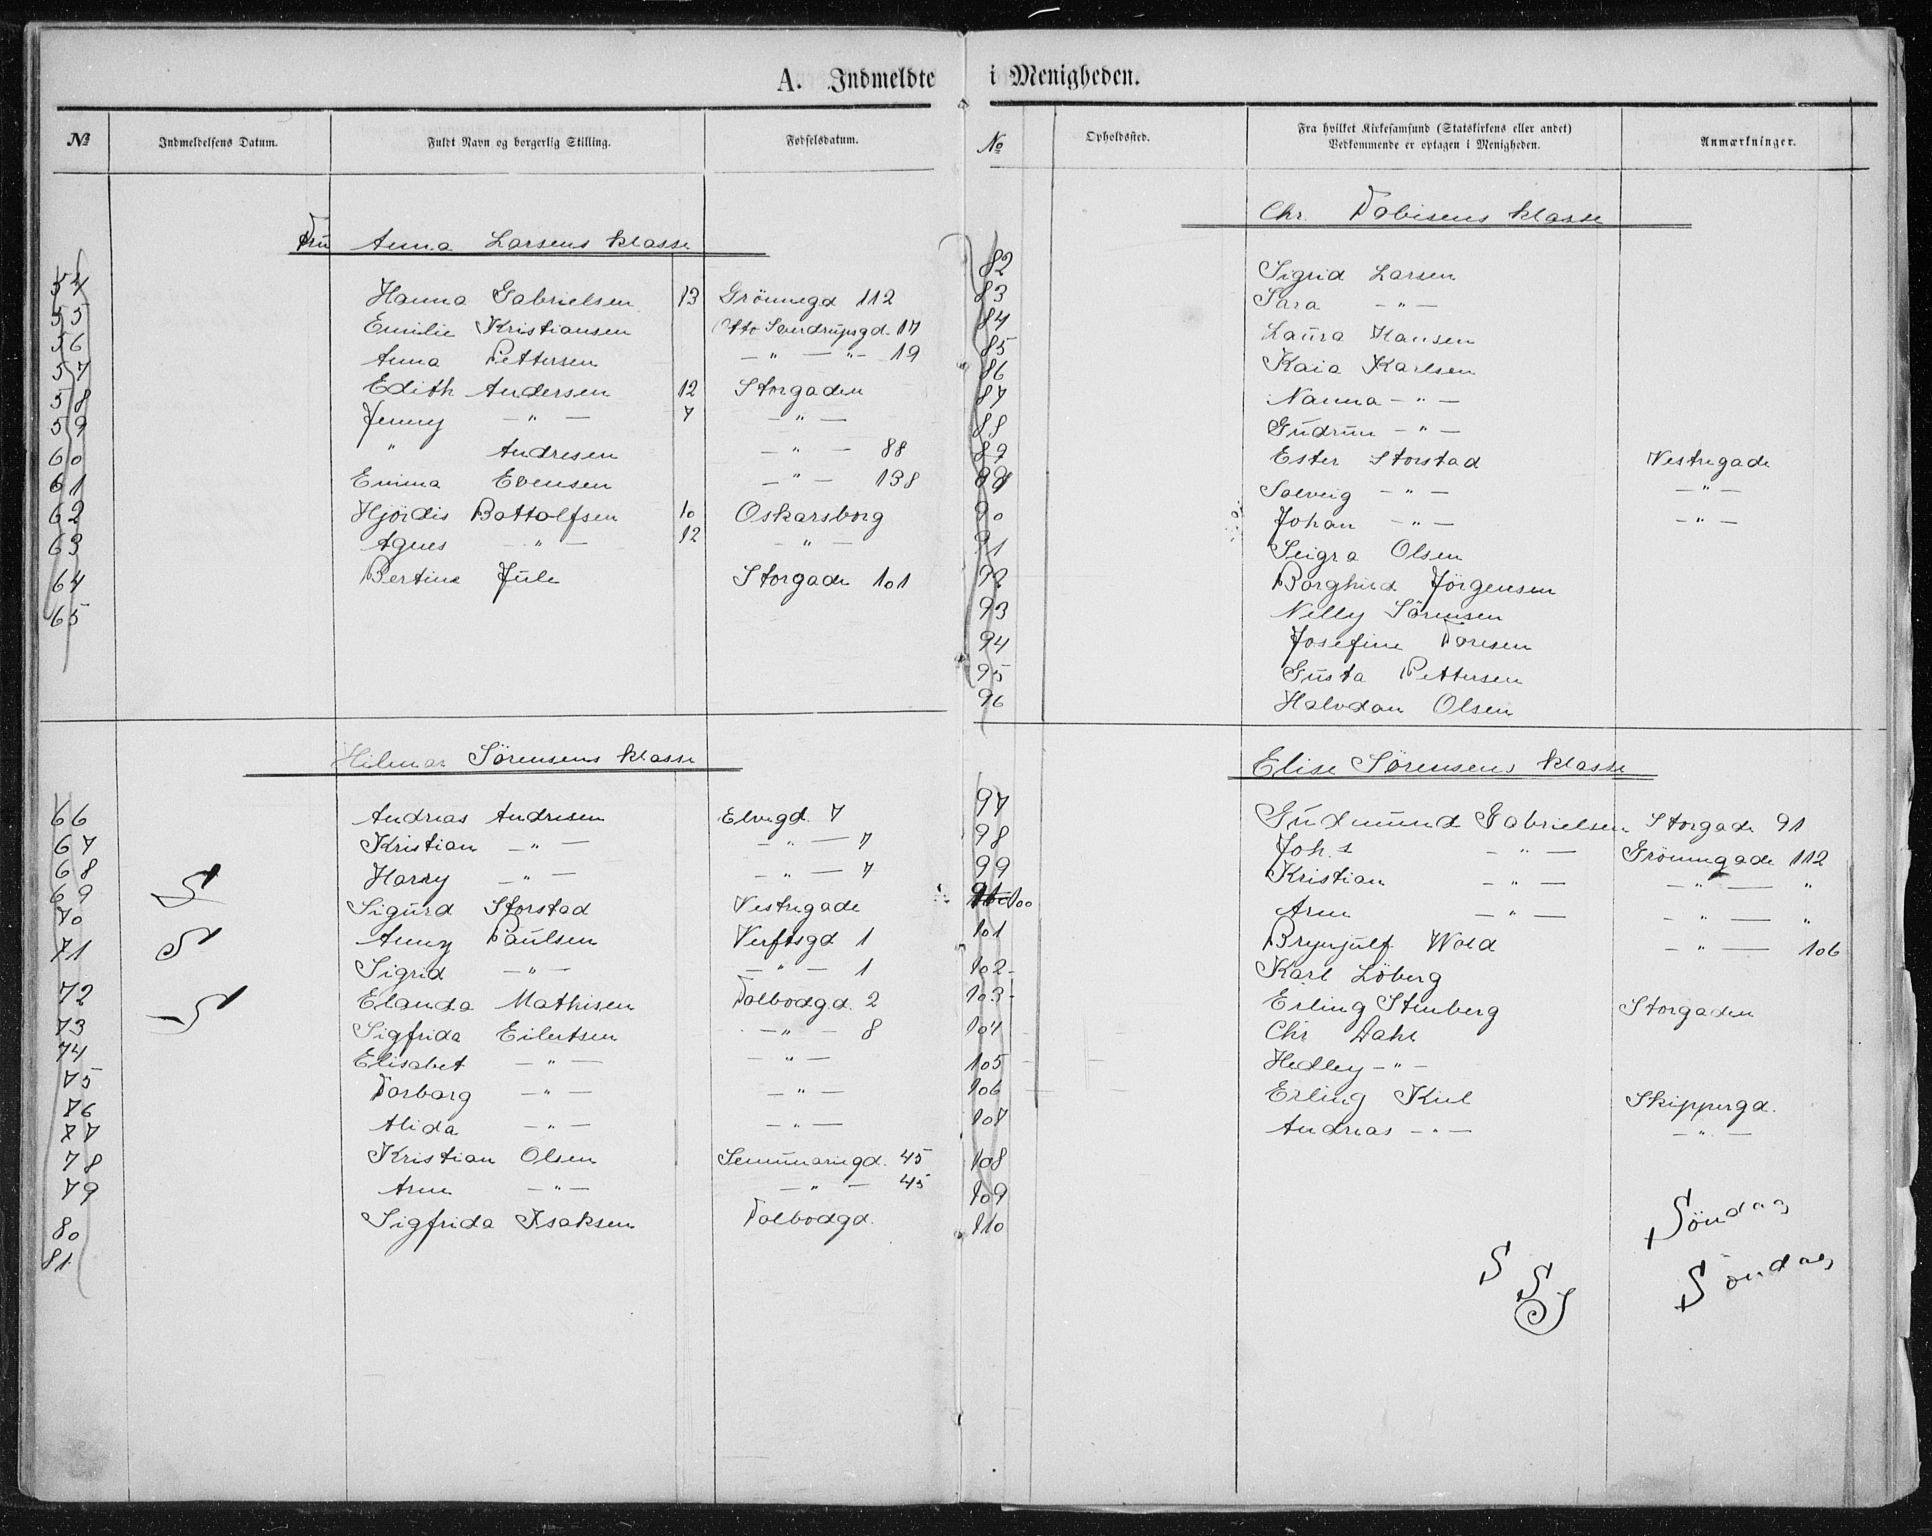 A. Indmeldte
№ Indmeldelsens Datum. Fuldt Navn og borgerlig Stilling. Fødselsdatum.
Fru Anna Larsens klasse
54 Hanna Gabrielsen 13 Grönnegd 112
55 Emilie Kristiansen Otto Sverdrupsgd. 17
56 Anna Pettersen — " — " — 19
57 Edith Andersen 12 Storgaden
58 Jenny — " — 7 — " —
59 " Andresen — " — 88
60 Emma Evensen — " — 138
61 Hjördis Bottolfsen 10 Oskarsborg
62 Agnes — " — 12 — " —
63 Bertine Jule Storgade 101
64
65
Hilmar Sørensens klasse
66 Andreas Andresen Elvegd. 7
67 Kristian — " — — " — 7
68 Harry — " — — " — 7
69 S Sigurd Storstad Vestregade
70 Anny Paulsen Verftsgd 1
71 S Sigrid — " — — " — 1
72 Elanda Mathisen Tolbodgd. 2
73 S Sigfrida Eilertsen — " — 8
74 Elisabet — " — — " —
75 Torborg — " — — " —
76 Alida — " — — " —
77 Kristian Olsen Seminariegd. 45
78 Arne — " — — " — 45
79 Sigfrida Isaksen Tolbodgd.
80
81
i Menigheden.
No Opholdssted. Fra hvilket Kirkesamfund (Statskirkens eller andet) Vedkommende er optagen i Menigheden. Anmærkninger.
Chr. Tobisens klasse
82 Sigrid Larsen
83 Sara — " —
84 Laura Hansen
85 Kaia Karlsen
86 Nanna — " —
87 Gudrun — " —
88 Ester Storstad Vestregade
89 Solveig — " — — " —
Johan — " — — " —
90 Olsen
91 Borghild Jörgensen
92 Nelly Sörensen
93 Josefine Toresen
94 Gusta Pettersen
95 Halvdan Olsen
96
Elise Sørensens klasse
97 Gudmund Gabrielsen Storgade 91
98 Joh.s — " — Grönnegade 112
99 Kristian — " — — " — "
100 Arne — " — — " — "
101 Brynjulf Wold — " — 106
102 Karl Löberg
103 Erling Stenberg Storgaden
104 Chr Dahl
105 Hedley — " —
106 Erling Kiel Skippergd.
107 Andreas — " — — " —
108
109
110
Söndag
S
S
S
Söndag